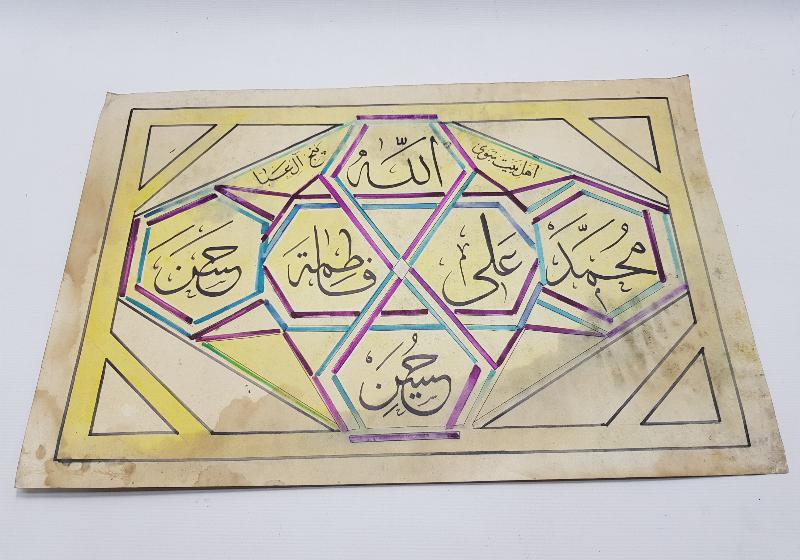 الله
اهل بيت نبوی
پنج آل عبا
محمد
علی
فاطمة
حسن
حسين